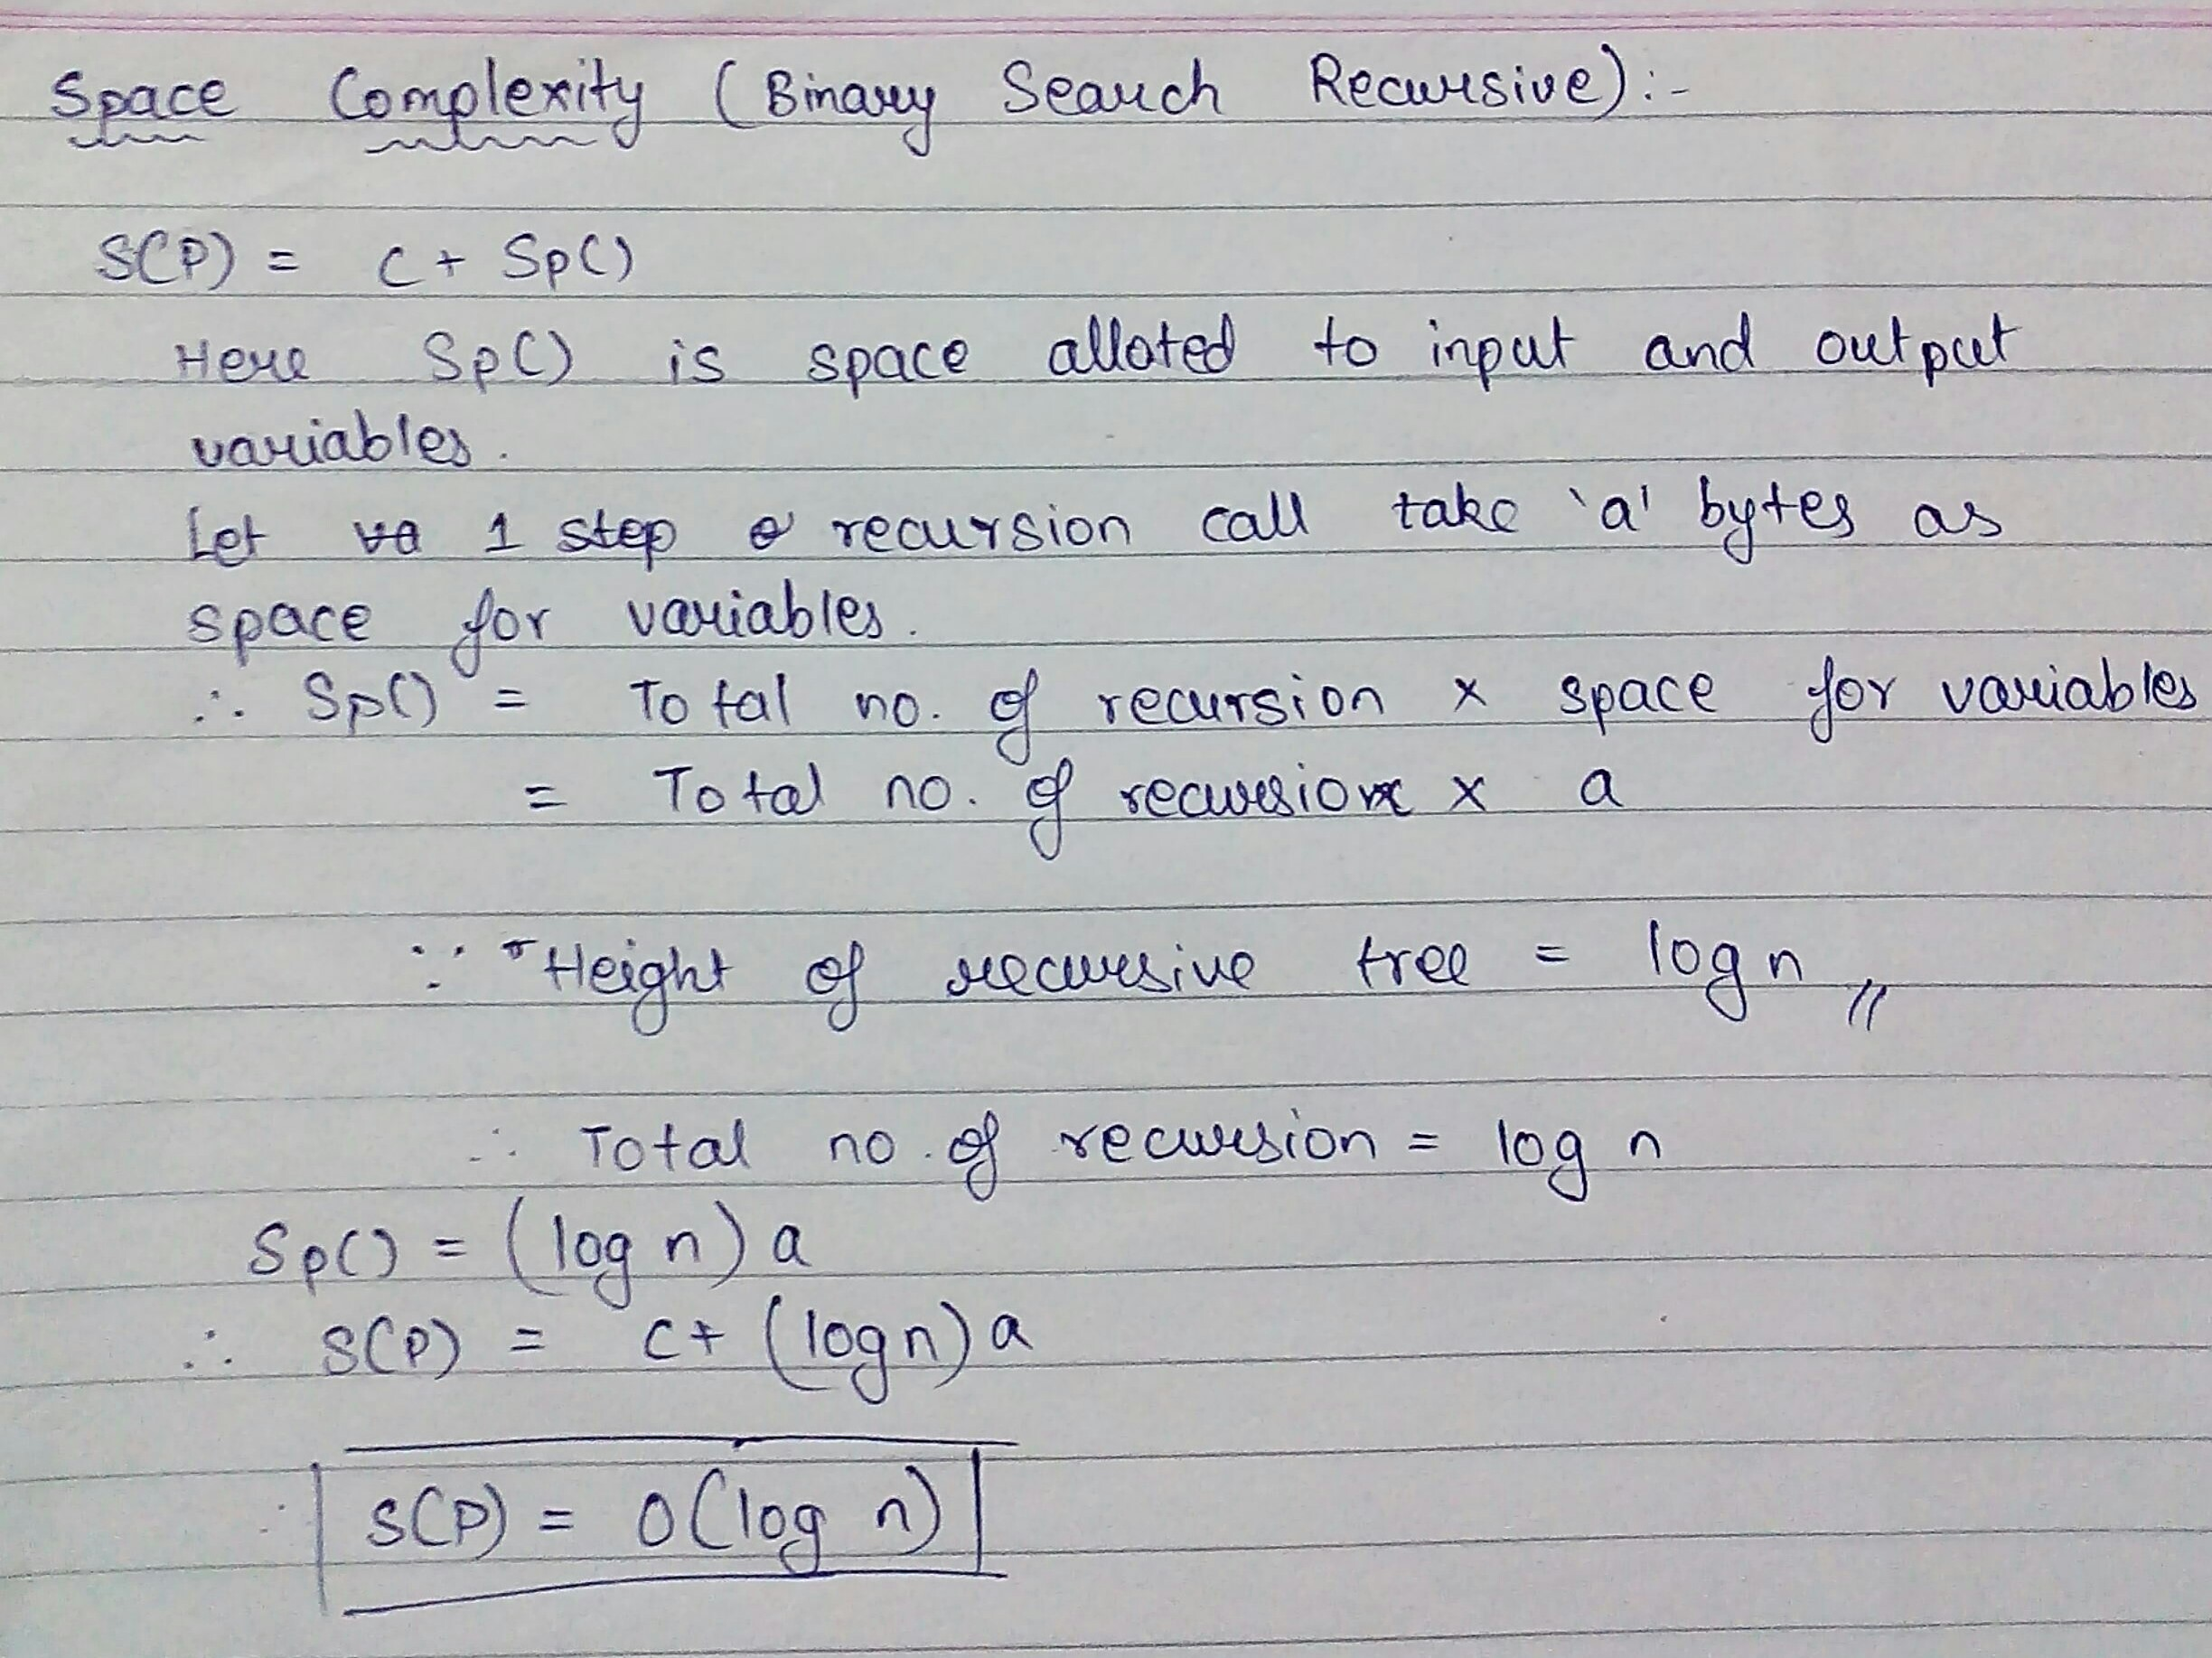 Space Complexity (Binary Search Recursive):-
S(P) = C + Sp()
Here Sp() is space alloted to input and output
variables.
Let va 1 step o recursion call take 'a' bytes as
space for variables.
∴ Sp() = Total no. of recursion x space for variables
= Total no. of recursion x a
∵ Height of recursive tree = log n //
∴ Total no. of recursion = log n
Sp() = (log n) a
∴ S(P) = C + (log n) a
S(P) = O(log n)